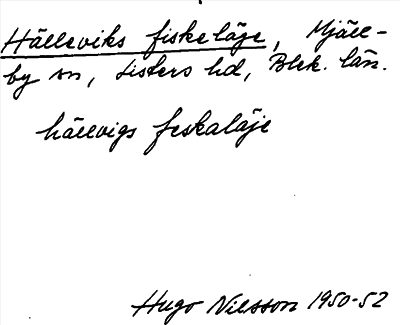 Hälleviks fiskeläje, Mjäll-
by sn, Listers hd, Blek. län.
hällvigs feskaläje
Hugo Nilsson 1950-52